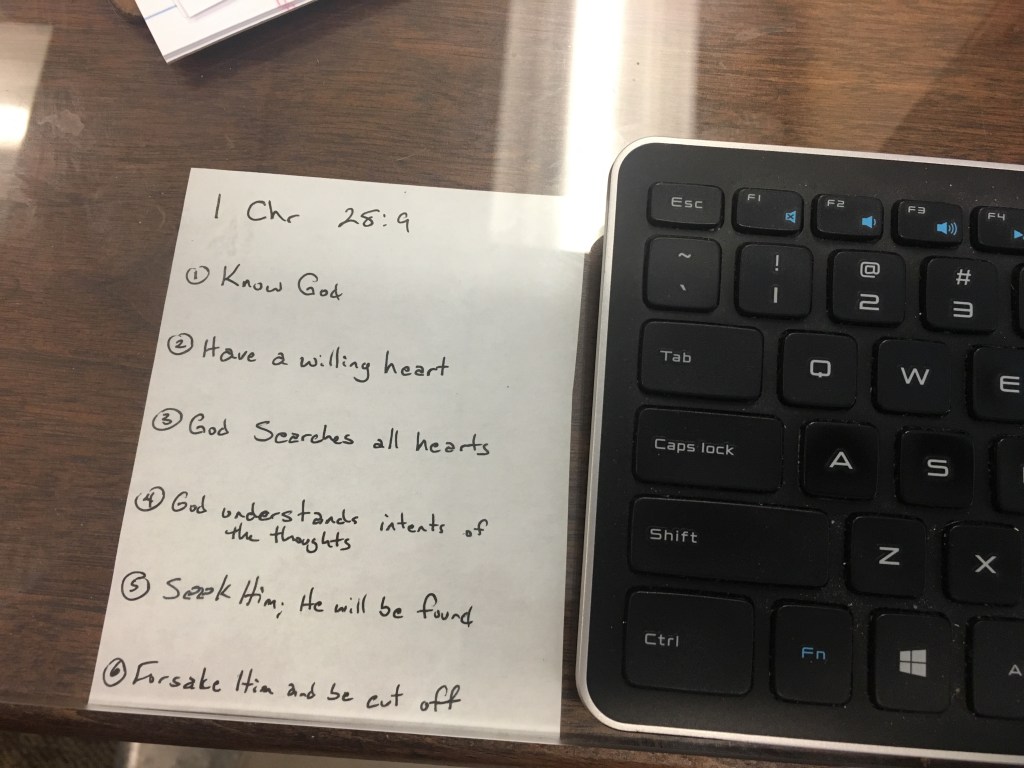 1 Chr 28:9
① Know God
② Have a willing heart
③ God Searches all hearts
④ God understands intents of
the thoughts
⑤ Seek Him; He will be found
⑥ Forsake Him and be cut off
Esc F1 F2 F3 F4
~ ! @ #
` 1 2 3
Tab Q W E
Caps lock A S
Shift Z X
Ctrl Fn A